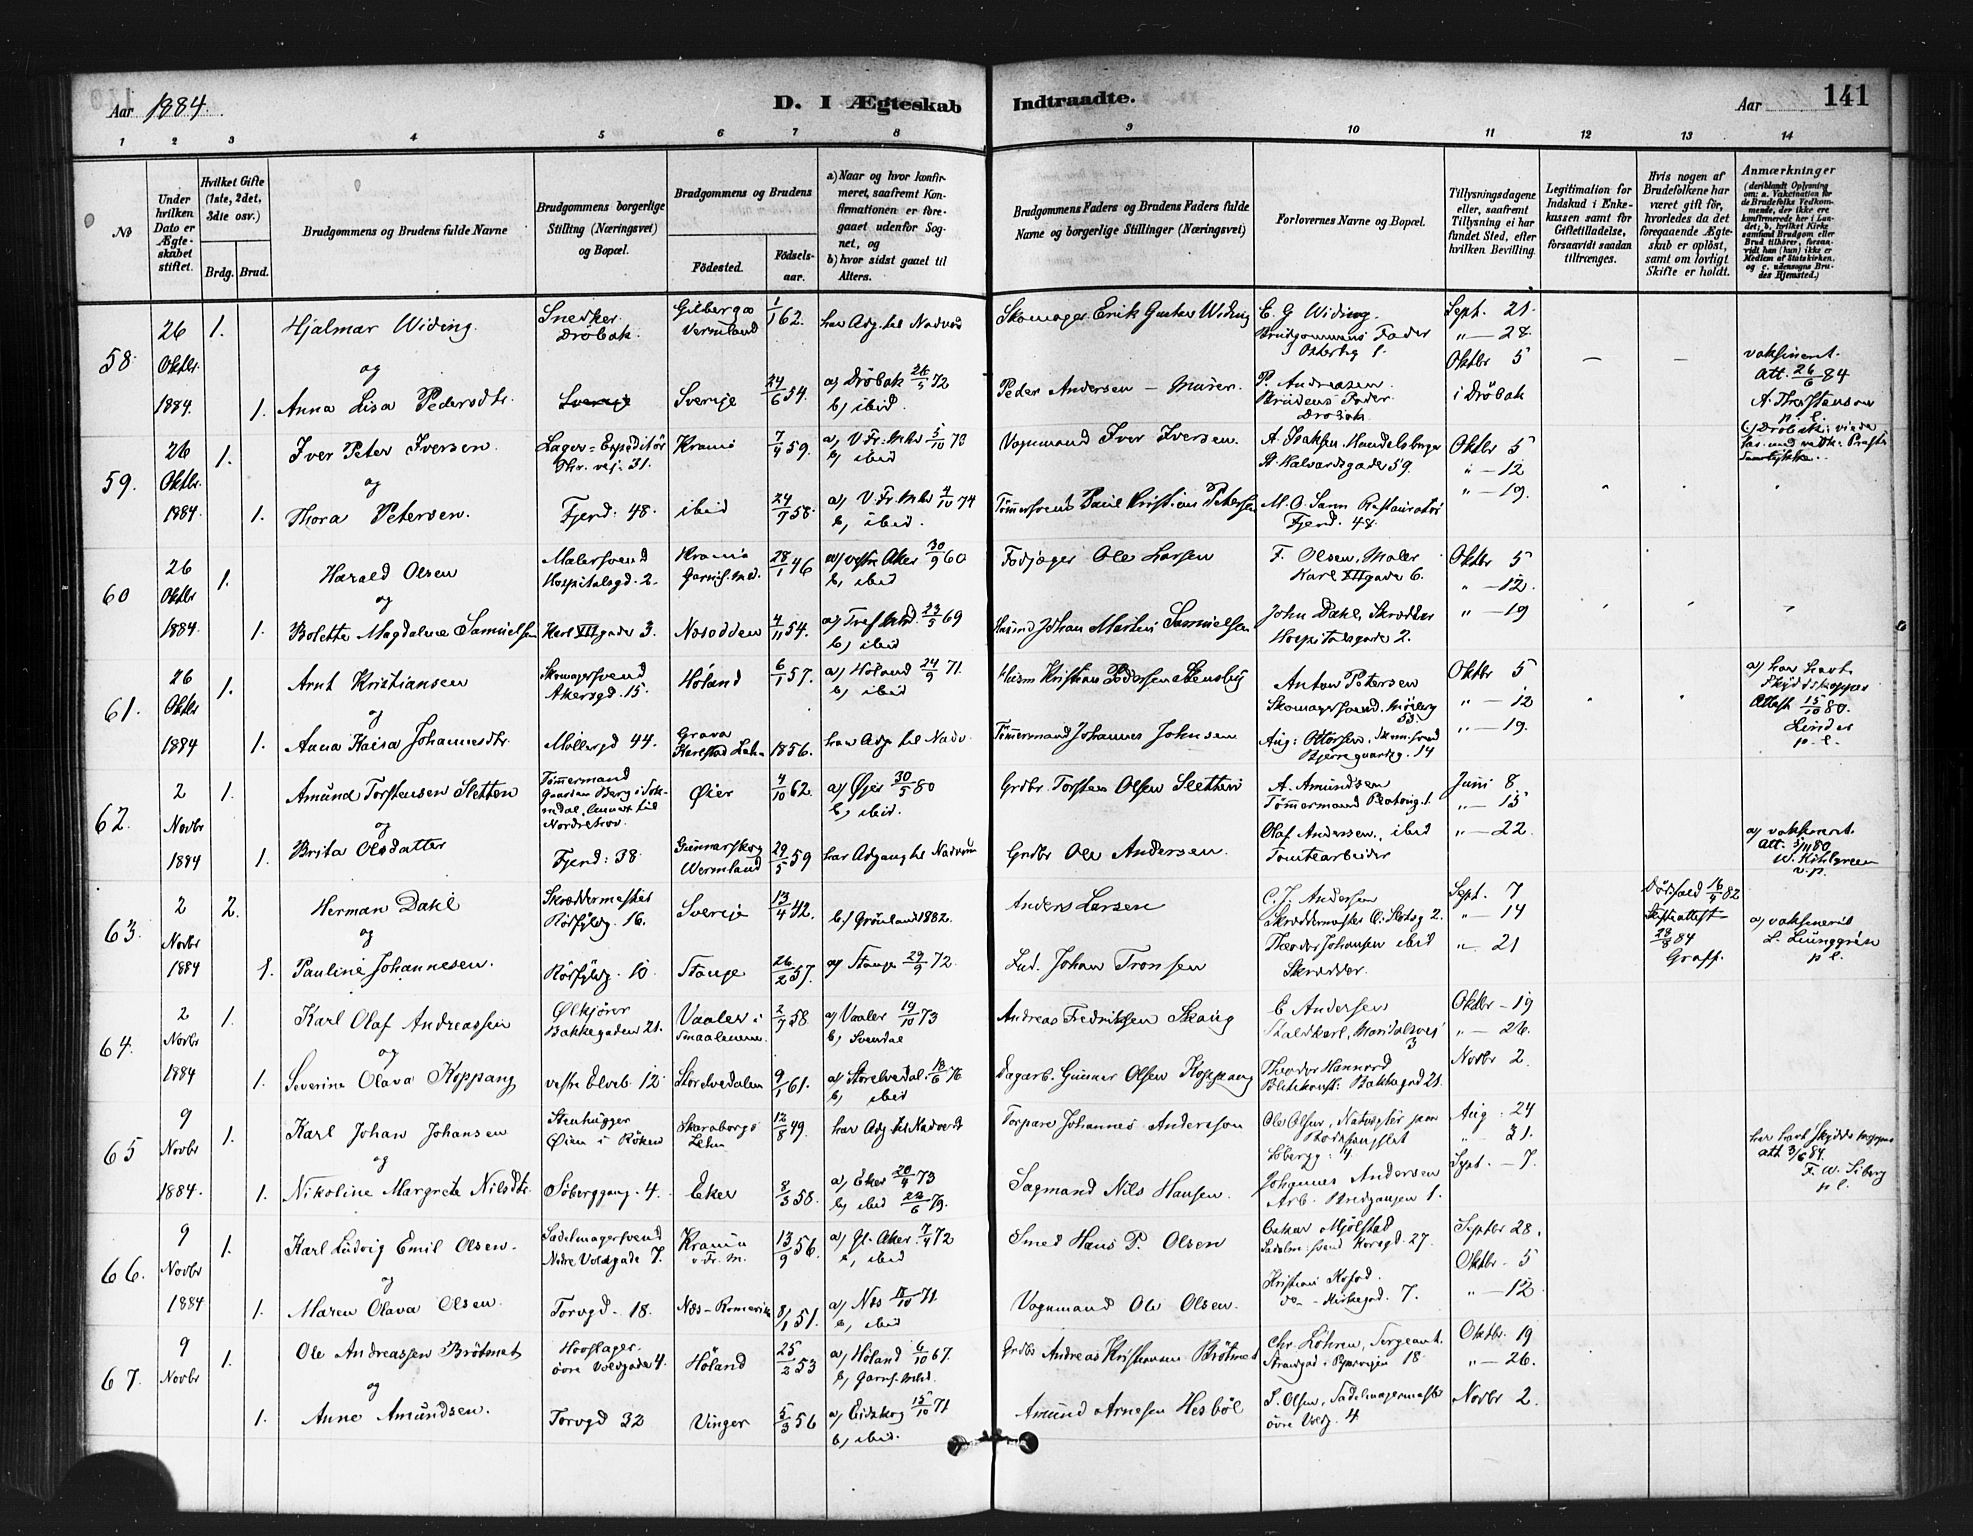 Aar 1884.
D. I Ægteskab Indtraadte.
Aar 141
1 2 3 4 5 6 7 8 9 10 11 12 13 14
No
Under hvilken Dato er Ægteskabet stiftet.
Hvilket Gifte (1ste, 2det, 3die osv.)
Brdg. Brud.
Brudgommens og Brudens fulde Navne
Brudgommens borgerlige Stilling (Næringsvei) og Bopæl.
Brudgommens og Brudens
Födested.
Födsels-aar.
a) Naar og hvor konfirmeret, saafremt Konfirmationen er foregaaet udenfor Sognet, og
b) hvor sidst gaaet til Alters.
Brudgommens Faders og Brudens Faders fulde Navne og borgerlige Stillinger (Næringsvei)
Forlovernes Navne og Bopæl.
Tillysningsdagene eller, saafremt Tillysning ei har fundet Sted, efter hvilken Bevilling.
Legitimation for Indskud i Enkekassen samt for Giftetilladelse, forsaavidt saadan tiltrænges.
Hvis nogen af Brudefolkene har været gift för, hvorledes da det foregaaende Ægteskab er oplöst, samt om lovligt Skifte er holdt.
Anmærkninger
(deriblandt Oplysning om: a. Vakcination for de Brudefolks Vedkommende, der ikke ere konfirmerede her i Landet; b. hvilket Kirkesamfund Brudgom eller Brud tilhörer, forsaavidt han (hun) ikke er Medlem af Statskirken, og c. udensogns Brudes Hjemsted.)
58. 26 Oktbr. 1884. 1. Hjalmar Widing. Snedker. Drøbak. Gilberga Vermland 1/1 62. har Adg. til Nadve Skomager Erik Gustav Widing E. G. Widing. Brudgommens Fader Osterhg 1. Sept. 21. " — 28 — —
og
1. Anna Lisa Pedersdtr. Sverige Sverige 24/6 54. a) Drøbak 26/5 72 b) ibid. Peder Andersen – Murer. P. Andreasen. Brudens Fader Drøbak Oktbr 5 i Drøbak vaksineret. Att. 26/6 84 p. l.
59. 26 Oktbr. 1884. 1. Iver Peter Iversen. Lager-Expeditør Thr. vej. 31. Krania 7/4 59. a) V. Fr. mkr 5/10 73 b) ibid Vognmand Iver Iversen. A. Isaksen. Handelsborger St. Halvardsgade 59. Oktbr 5 " — 12
og
1. Thora Petersen. Fjerd. 48. ibid 24/7 58. a) V. Fr. mkr 4/10 74 b) ibid. Tømmersvend Paul Kristian Petersen M. O. Sann Restauratør Fjerd. 48. " — 19.
60 26 Oktbr 1884. 1. Harald Olsen Malersvend Hospitalsgd. 2. Krania Garnis. md. 28/1 46 a) vestre Aker 30/9 60 b) ibid Fodjæger Ole Larsen F. Olsen, Maler Karl XII gade 6. Oktbr 5 " — 12.
og
1. Bolette Magdalene Samuelsen Karl XII gade 3. Nesodden 4/11 54. a) Tref. mkd. 23/5 69 b) ibid Husmd Johan Martin Samuelsen John Dahl, Skrædder Hospitalsgade 2. " — 19
61. 26 Oktbr 1884 1. Arnt Kristiansen Skomagersvend Akersgd. 15. Høland 6/1 57. a) Høland 24/9 71. b) ibid Husm Kristian Pedersen Stensby Anton Petersen Skomagersvend. Møllerg 53 Oktbr 5 " — 12 a) har havt Skyddskopper Attest 15/10 80. Linder p. l.
og
1. Anna Kaisa Johannesdtr. Møllergd 44. Grava Karlstad Lehn 1856. har Adg. til Nadv. Tømmermand Johannes Johnsen Aug: Ottosen. Bjerregaardsg. 14 " — 19.
62. 2 Novbr 1884 1. Amund Torstensen Sletten Tømmermand Øier 4/10 62. a) Øjer 30/5 80 b) ibid. Grdbr Torsten Olsen Sletten A. Amundsen Tømmermand 1. Juni 8 " — 15
og
1. Brita Olsdatter Fjerd: 38. Gunnarskog Wermland 29/5 59 har Adgang til Nadverm Grdbr Ole Andersen. Olaf Andersen, ibid Tomtearbeider " — 22 a) vaksineret. Att. 3/11 80 W. Kihlgreen v. p.
63. 2 Novbr 1884 2. Herman Dahl Skræddermester Rørfylg. 16. Sverige 13/4 42. b) Grønland 1882. Anders Larsen C. J. Andersen Skræddermester C. Slotsg 2. Sept. 7 " — 14 Dødsfald 16/9 82 Skifteattest 28/8 84 Graff. a) vaksineret L. Ljunggren p l.
og
1. Pauline Johannesen. Rørfylg. 10 Stange 26/2 57. a) Stange 29/9 72. Ind. Johan Tronsen Theodor Johansen ibid Skrædder. " 21
64. 2 Novbr 1884 1. Karl Olaf Andreassen Ølkjører Bakkegaden 21. Vaaler i Smaalenene. 2/9 58. a) Vaaler 19/10 73 b) Svendal Andreas Fredriksen Skaug C Andersen Staldkarl, Maridalsvej 3 Oktbr – 19 " — 26.
og
1. Severine Olava Koppang vestre Elveb. 12 Storelvedalen 9/1 61. a) Storelvedal. 18/6 76 b) ibid Dagarb. Gunner Olsen Koppang Theodor Hannord Politikonst. Bakkegd 21. Novbr 2.
65 9 Novbr 1884. 1. Karl Johan Johansen Stenhugger Øien i Røken Skaraborgs Lehn 12/8 49. har Adg til Nadverdt Torpare Johannes Andersson Ole Olsen, Natvægter paa Bodsfængslet Søbergg. 14 Aug. 24 " 31. har havt Skyddskopper att 3/6 84. F. W. Siberg p l.
og
1. Nikoline Margrete Nilsdtr. Søberggang. 4. Eker 8/3 58. a) Eker 20/4 73 b) ibid 22/6 79. Sagmand Nils Hansen. Johannes Andersen Arb. Bredgangen 1. Sept. — 7.
66. 9 Novbr 1884 1. Karl Ludvig Emil Olsen. Sadelmagersvend Nedre Voldgade 7. Krania v. Fr. M. 13/9 56. a) Gl. Aker. 7/4 72 b, ibid Smed Hans P. Olsen Oskar Mjølstad Sadelm. svend Korsgd. 27. Septbr 28. Oktbr. 5
og
1. Maren Olava Olsen. Torvgd. 18. Næs – Romerike 8/1 51. a) Næs 71. b, ibid Vognmand Ole Olsen. Kristian Kofod. do – Kirkegd. 7. " — 12.
67. 9 Novbr 1. Ole Andreassen Brötmet Hovslager. övre Voldgade 4. Höland 25/2 53 a) Høland 6/10 67. b) Garns. mkd. Grdbr Andreas Kristiansen Brötmet Chr. Löhren, Sergeant. Strandgd. i Pipervigen 18. Oktbr. 19 " — 26.
og
1. Anne Amundsen. Torvgd 32 Vinger 5/3 56 a) Eidskog 15/10 71 b, ibid. Amund Arnesen Hesböl S. Olsen, Sadelmagermester övre Voldg. 4 Novbr 2.